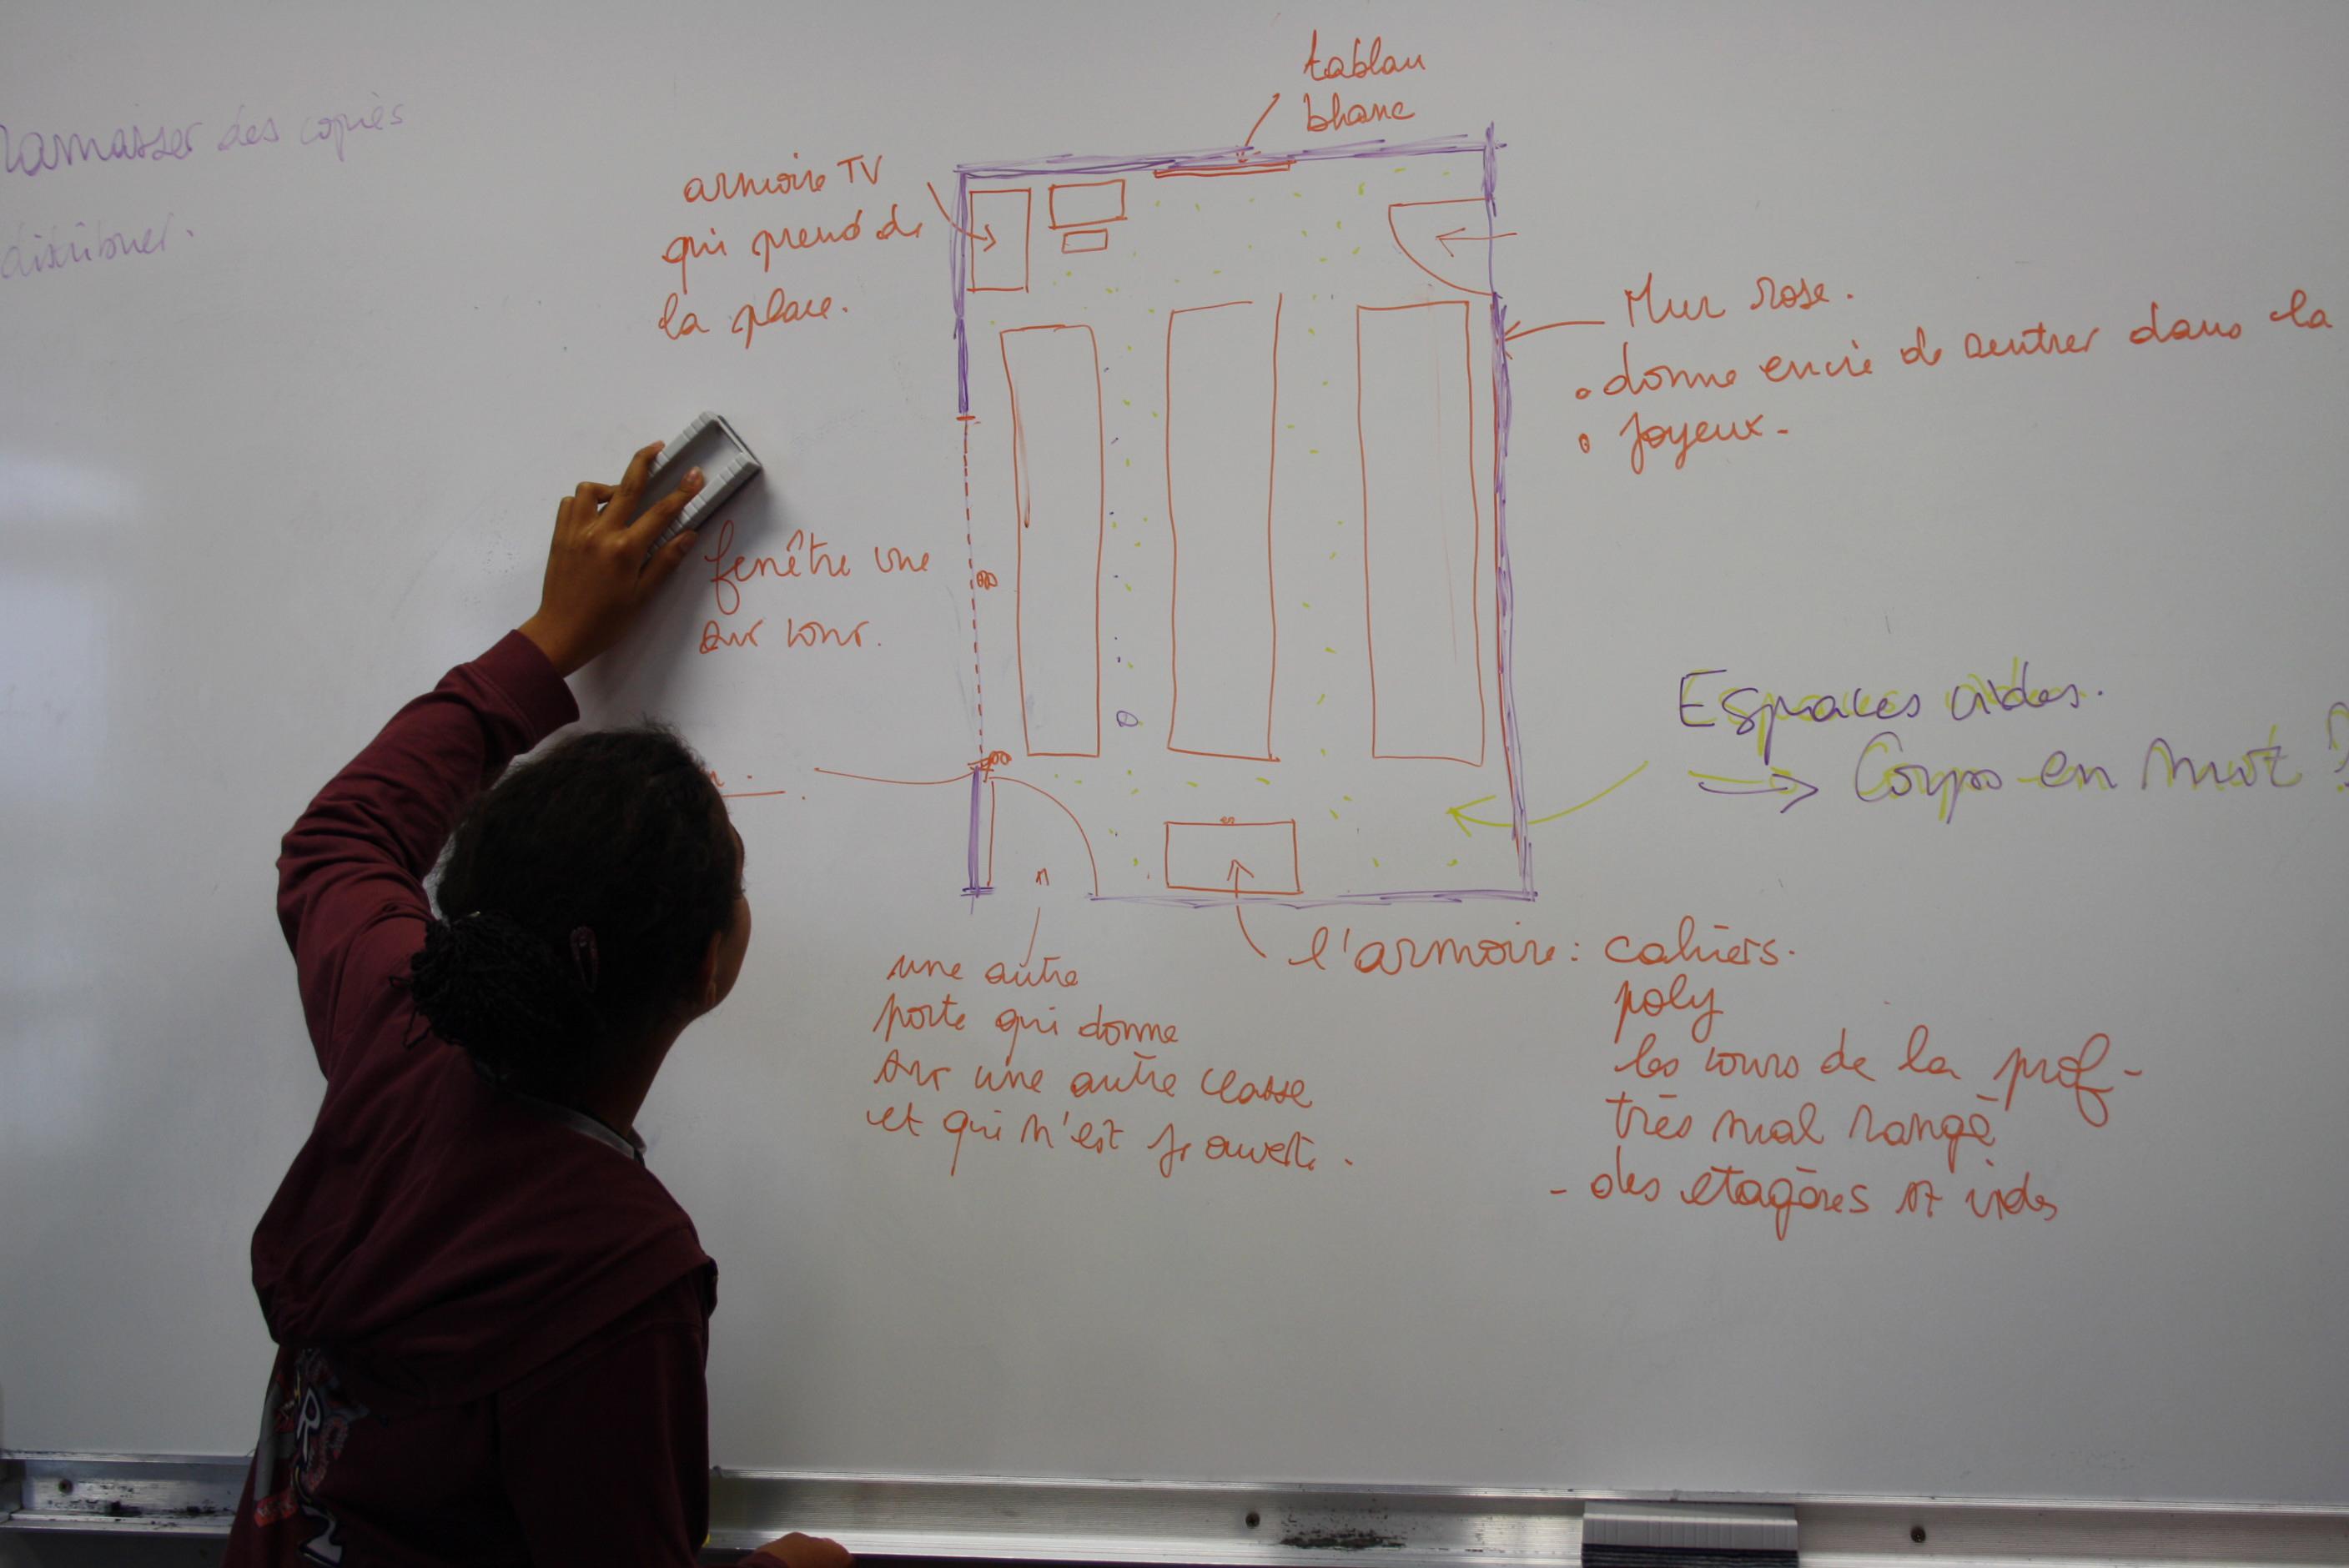 ramasser des copies
distribuer.
tablau
blanc
armoire TV
qui prend de
la place.
Mur rose.
• donne envie de rentrer dans la
• joyeux-
fenêtre vue
sur cour.
Espaces vides.
→ Corps en mvt ?
l'armoire : cahiers.
poly
les cours de la prof-
très mal rangé
- des étagères st vides
une autre
porte qui donne
sur une autre classe
et qui n'est js ouverte.